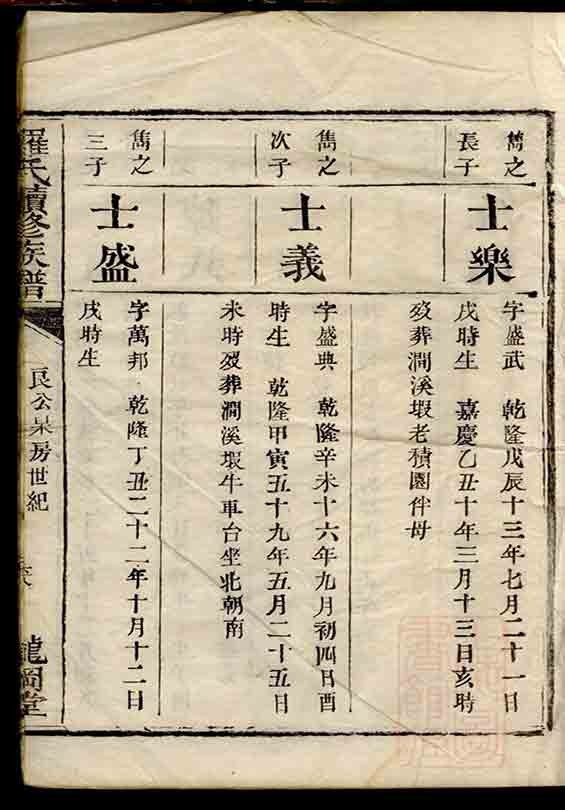 雋之
長子
士樂
字盛武 乾隆戊辰十三年七月二十一日
戌時生 嘉慶乙丑十年三月十三日亥時
歿葬澗溪塅老積園伴母
雋之
次子
士義
字盛典 乾隆辛未十六年九月初四日酉
時生 乾隆甲寅五十九年五月二十五日
未時歿葬澗溪塅牛車台坐北朝南
雋之
三子
士盛
字萬邦 乾隆丁丑二十二年十月十二日
戌時生
羅氏續修族譜
良公杲房世紀
龍岡堂